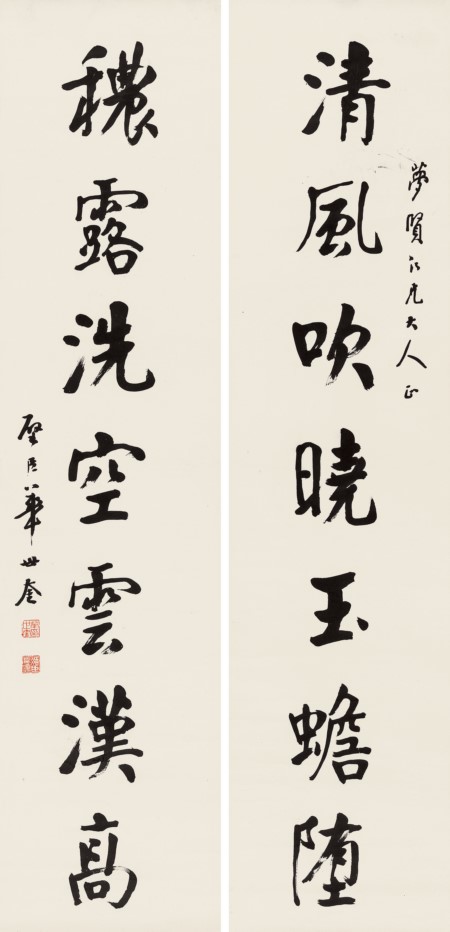 夢賢仁兄大人正
清風吹曉玉蟾墮
穠露洗空雲漢高
璧臣華世奎